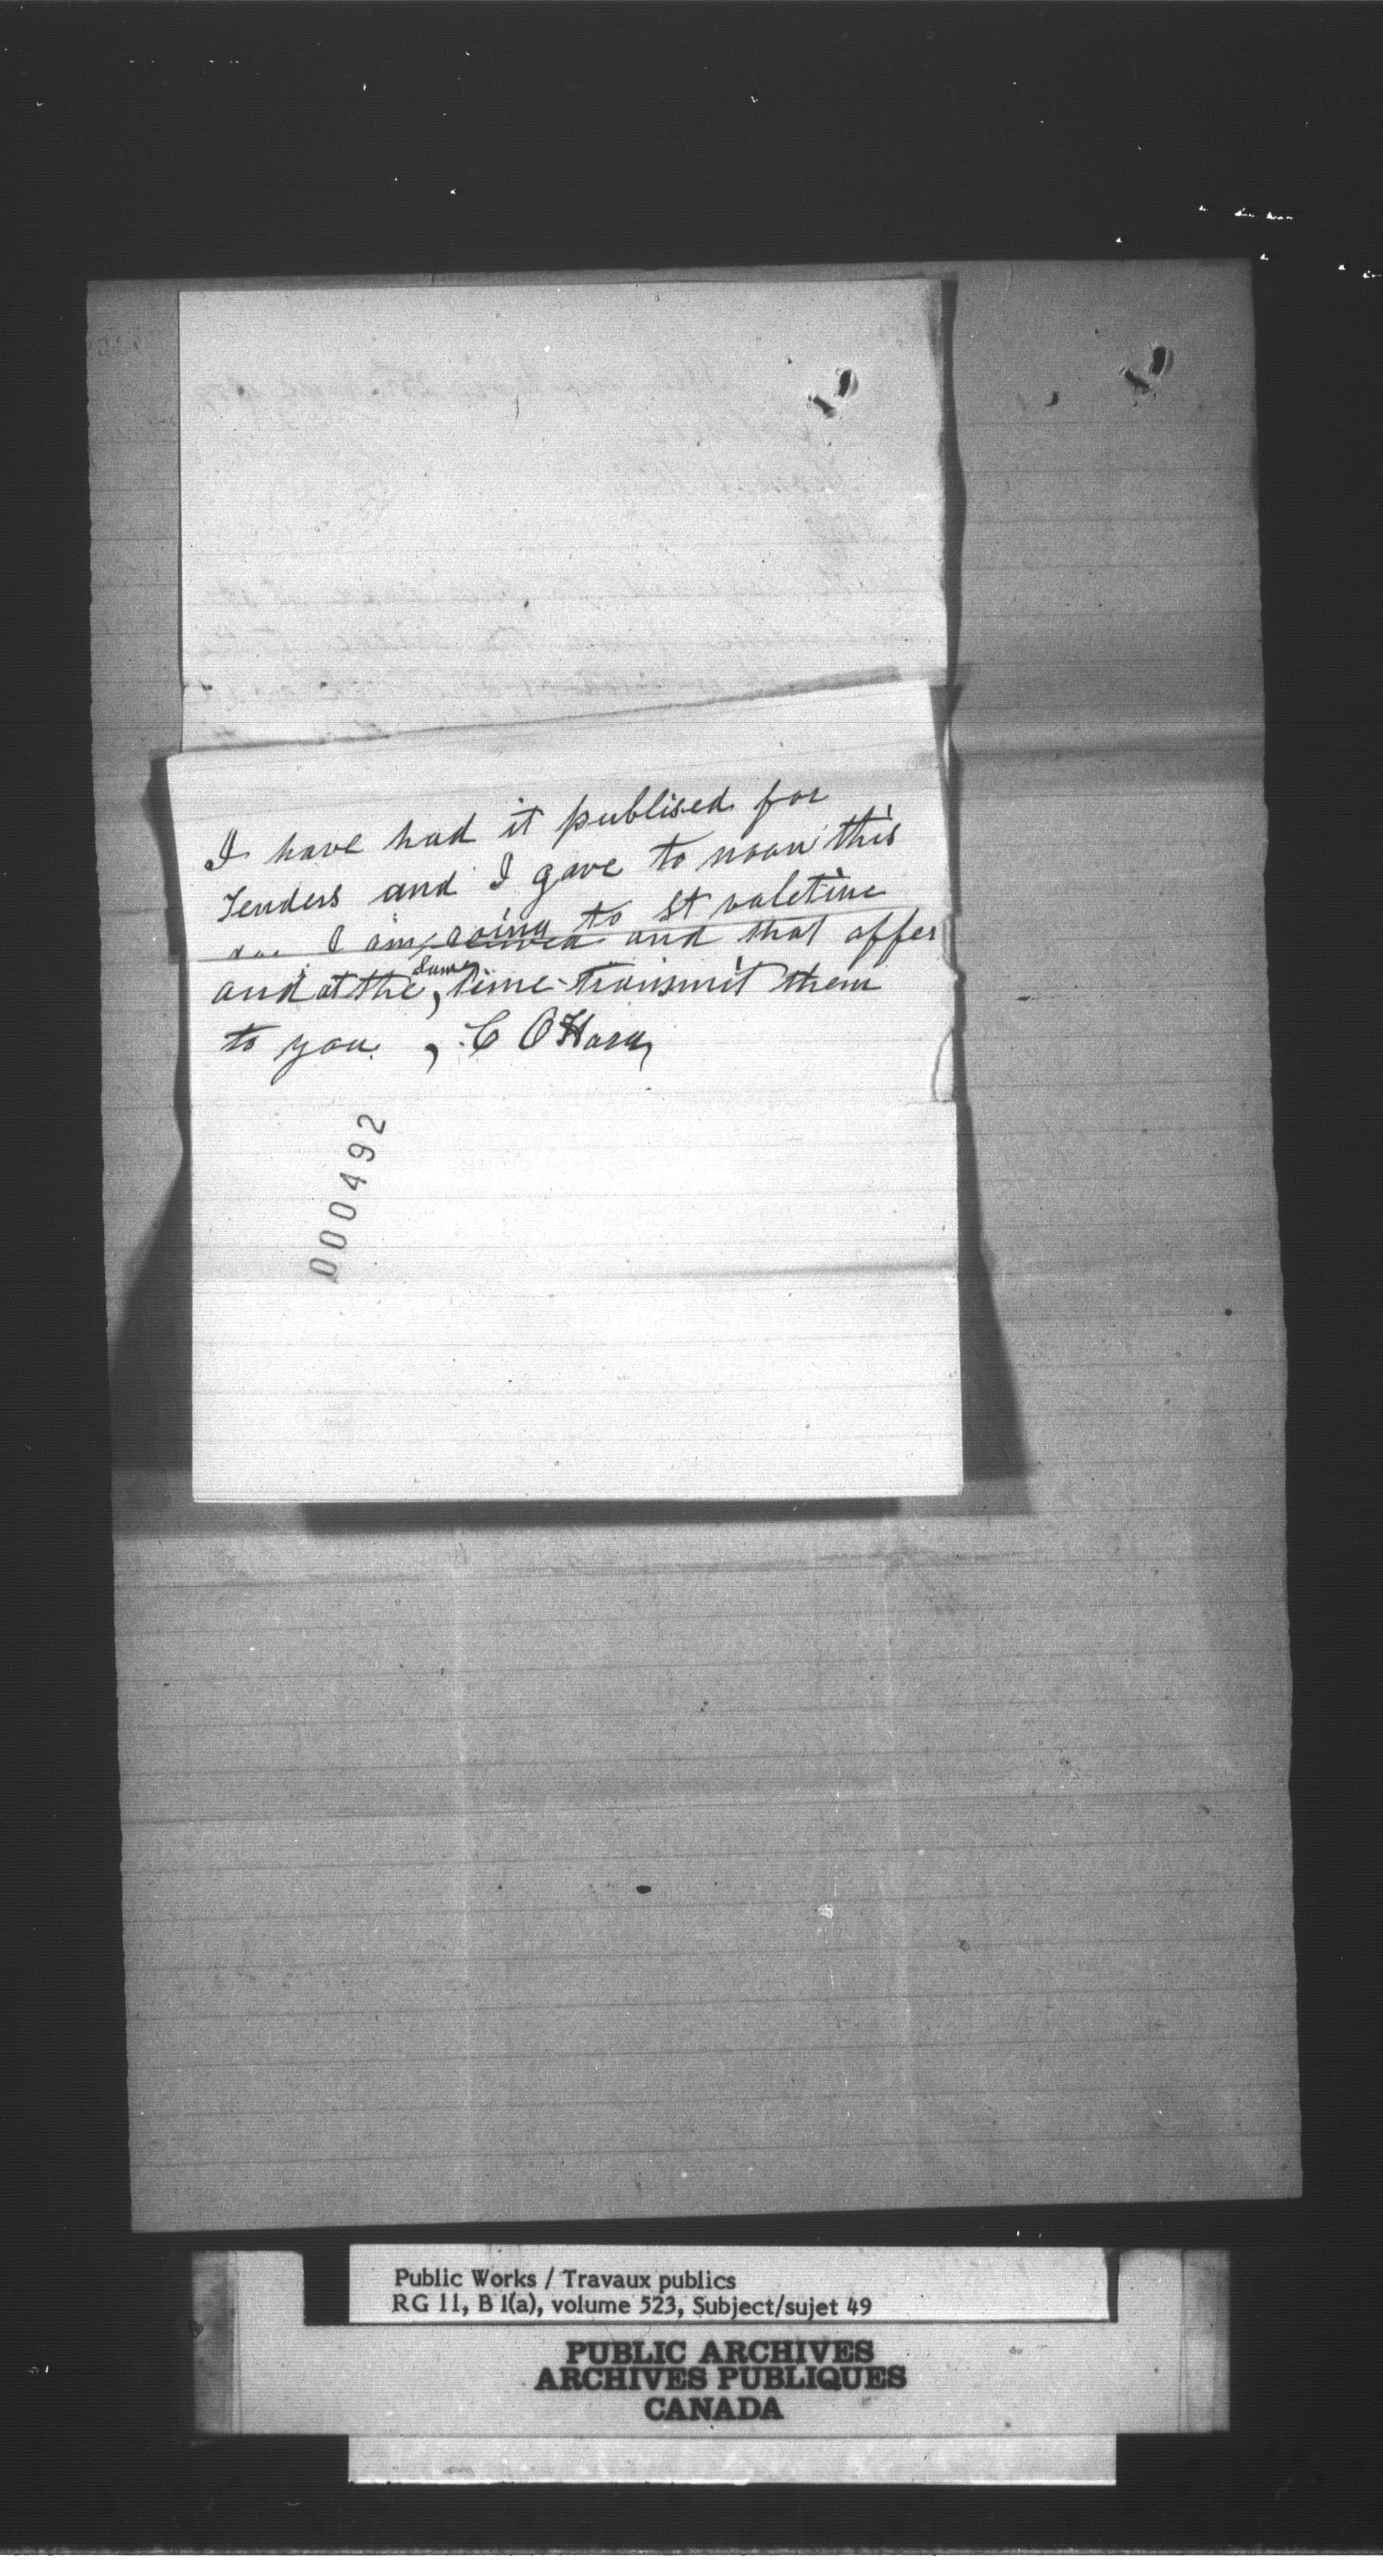 I have had it publised for
Tenders and I gave to noon this
day I am going to St valetine
and that offer
and at the same time transmit them
to you, C O'Hara,
000492
Public Works / Travaux publics
RG 11, B 1(a), volume 523, Subject/sujet 49
PUBLIC ARCHIVES
ARCHIVES PUBLIQUES
CANADA